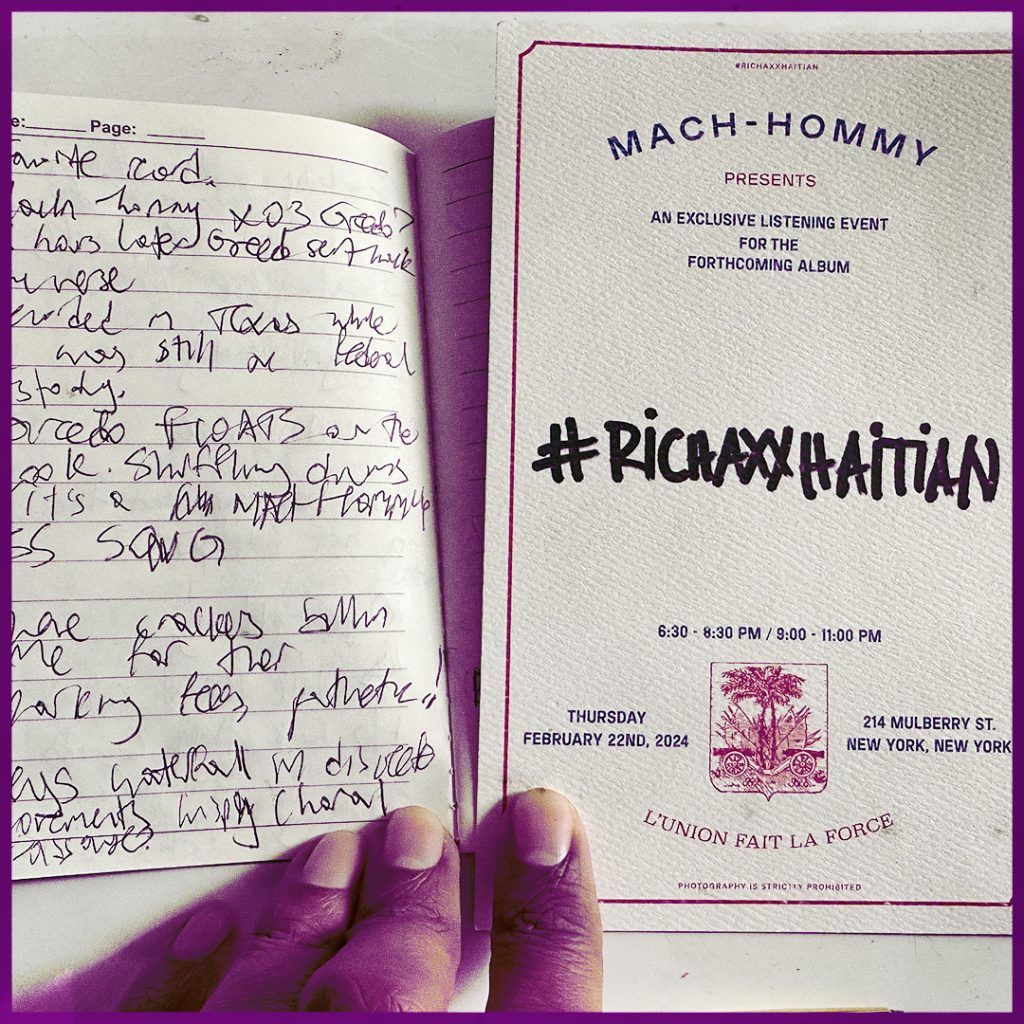 e:______ Page: ______
cord.
hommy x03 Greedo?
hours later Greedo sent back
verse
in Texas while
was still in federal
stody.
FLOATS on the
Shuffling drums
it's a MACH Hommy
SS SONG
crackers
me for their
parking fees pathetic!!
waterfall in discrete
ovements choral
#RICHAXXHAITIAN
MACH-HOMMY
PRESENTS
AN EXCLUSIVE LISTENING EVENT
FOR THE
FORTHCOMING ALBUM
#RICHAXXHAITIAN
6:30 - 8:30 PM / 9:00 - 11:00 PM
THURSDAY
FEBRUARY 22ND, 2024
214 MULBERRY ST.
NEW YORK, NEW YORK
L'UNION FAIT LA FORCE
PHOTOGRAPHY IS STRICTLY PROHIBITED